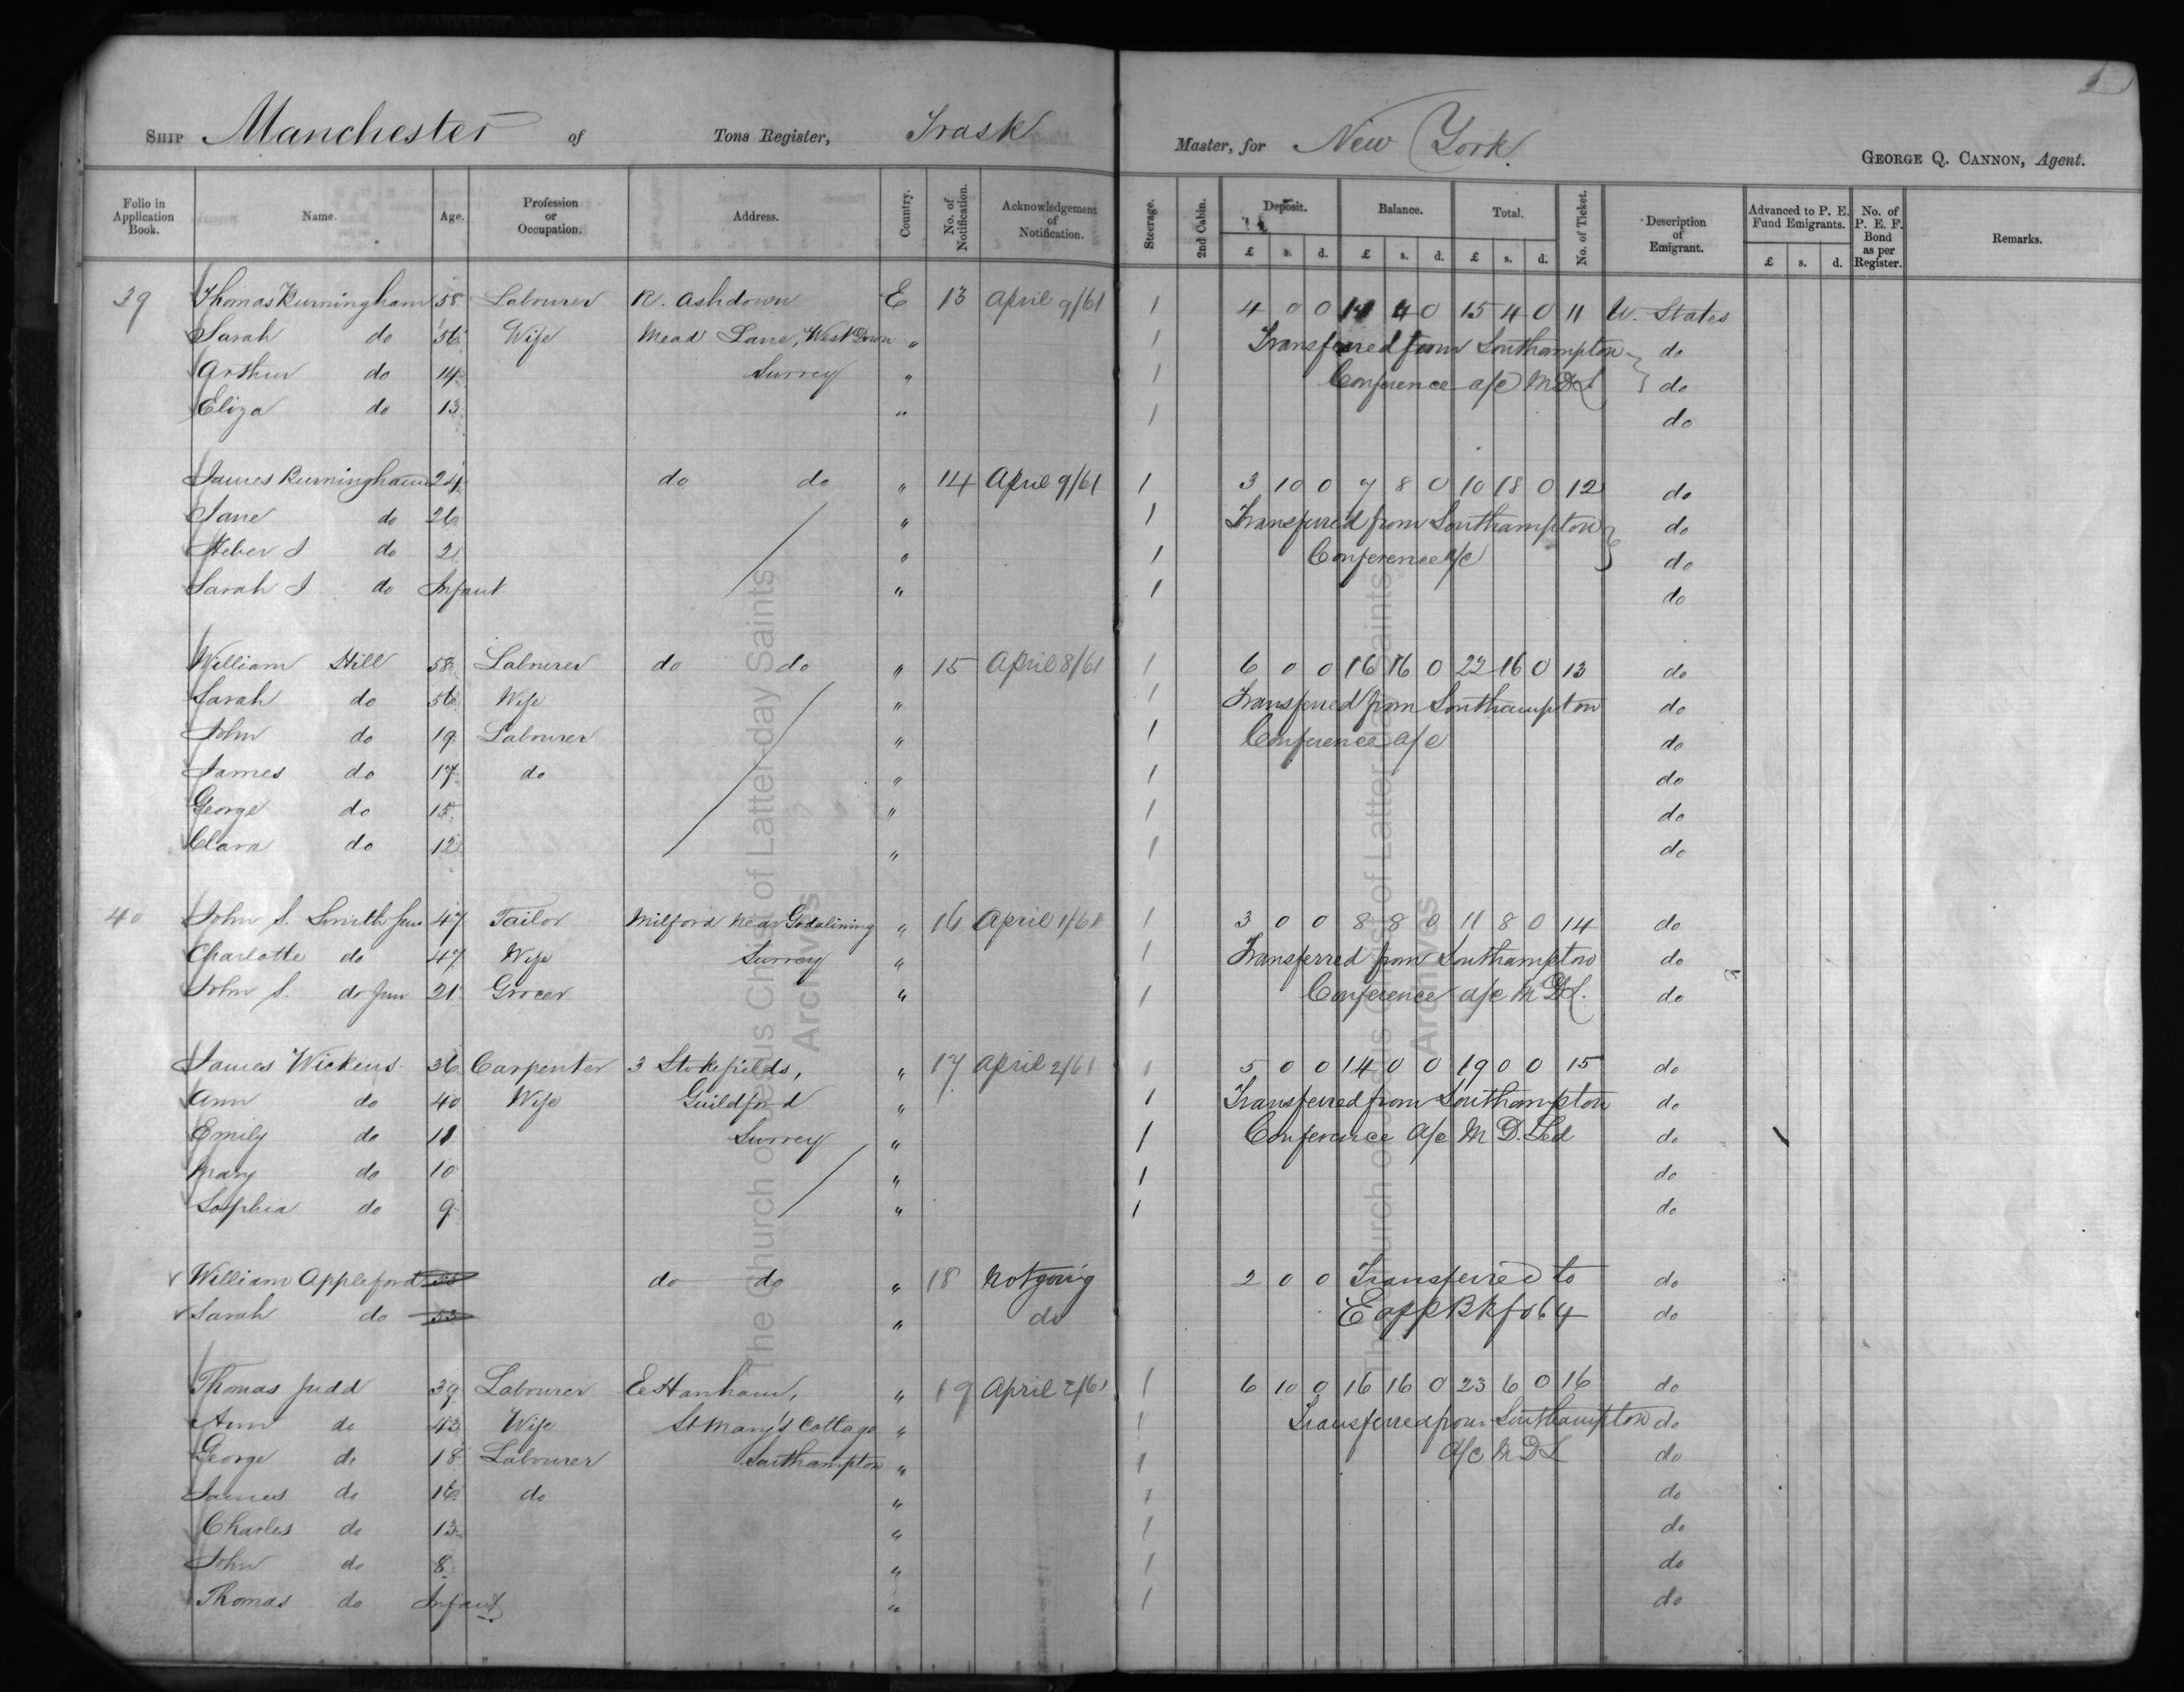 SHIP Manchester of Tons Register, Trask Master, for New York. GEORGE Q. CANNON, Agent.
Folio in Application Book. Name. Age. Profession or Occupation. Address. Country. No. of Notification. Acknowledgement of Notification. Steerage. 2nd Cabin. Deposit. Balance. Total. No. of Ticket. Description of Emigrant. Advanced to P. E. Fund Emigrants. No. of P. E. F. Bond as per Register. Remarks.
£ s. d. £ s. d. £ s. d. £ s. d.
39 Thomas Burningham 58 Labourer R. Ashdown E 13 April 9/61 1 4 0 0 11 4 0 15 4 0 11 U. States
Sarah do 56 Wife Mead Lane, West Down " 1 Transferred from Southampton do
Arthur do 14 Surrey " 1 Conference a/c M D L do
Eliza do 13 " 1 do
James Burningham 24 do do " 14 April 9/61 1 3 10 0 7 8 0 10 18 0 12 do
Jane do 26 " 1 Transferred from Southampton do
Heber J do 2 " 1 Conference a/c do
Sarah J do Infant " 1 do
William Hill 58 Labourer do do " 15 April 8/61 1 6 0 0 16 16 0 22 16 0 13 do
Sarah do 56 Wife " 1 Transferred from Southampton do
John do 19 Labourer " 1 Conference a/c do
James do 17 do " 1 do
George do 15 " 1 do
Clara do 12 " 1 do
40 John S. Smith Sen 47 Tailor Milford near Godalming " 16 April 1/61 1 3 0 0 8 8 0 11 8 0 14 do
Charlotte do 47 Wife Surrey " 1 Transferred from Southampton do
John S. do Jun 21 Grocer " 1 Conference a/c M D L. do
James Wickens 36 Carpenter 3 Stokefields, " 17 April 2/61 1 5 0 0 14 0 0 19 0 0 15 do
Ann do 40 Wife Guildford " 1 Transferred from Southampton do
Emily do 11 Surrey " 1 Conference a/c M D. Led do
Mary do 10 " 1 do
Sophia do 9 " 1 do
William Appleford do do " 18 Not going 2 0 0 Transferred to do
Sarah do 53 " do E app Bk fo 64 do
Thomas Judd 39 Labourer E. Hanham, " 19 April 2/61 1 6 10 0 16 16 0 23 6 0 16 do
Ann do 43 Wife St Mary's Cottage " 1 Transferred from Southampton do
George do 18 Labourer Southampton " 1 a/c M D L do
James do 16 do " 1 do
Charles do 13 " 1 do
John do 8 " 1 do
Thomas do Infant " 1 do
The Church of Jesus Christ of Latter-day Saints
Archives
The Church of Jesus Christ of Latter-day Saints
Archives